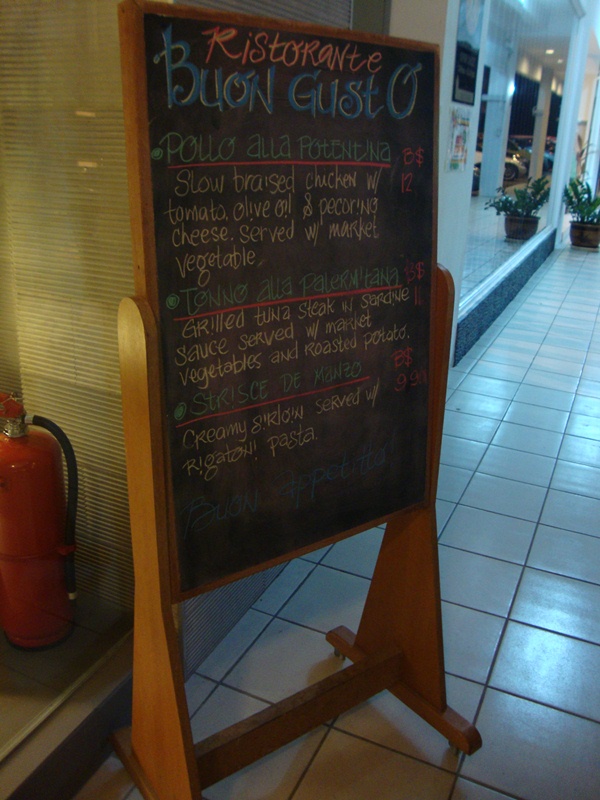 Ristorante
Buon Gusto
• Pollo alla Potentina B$
Slow braised chicken w/ 12
tomato, olive oil & pecorino
cheese. Served w/ market
vegetable.
• Tonno alla Palermitana B$
Grilled tuna steak in sardine 11
sauce served w/ market
vegetables and roasted potato.
• Strisce De Manzo B$
Creamy sirloin served w/
rigatoni pasta.
Buon Appetitto